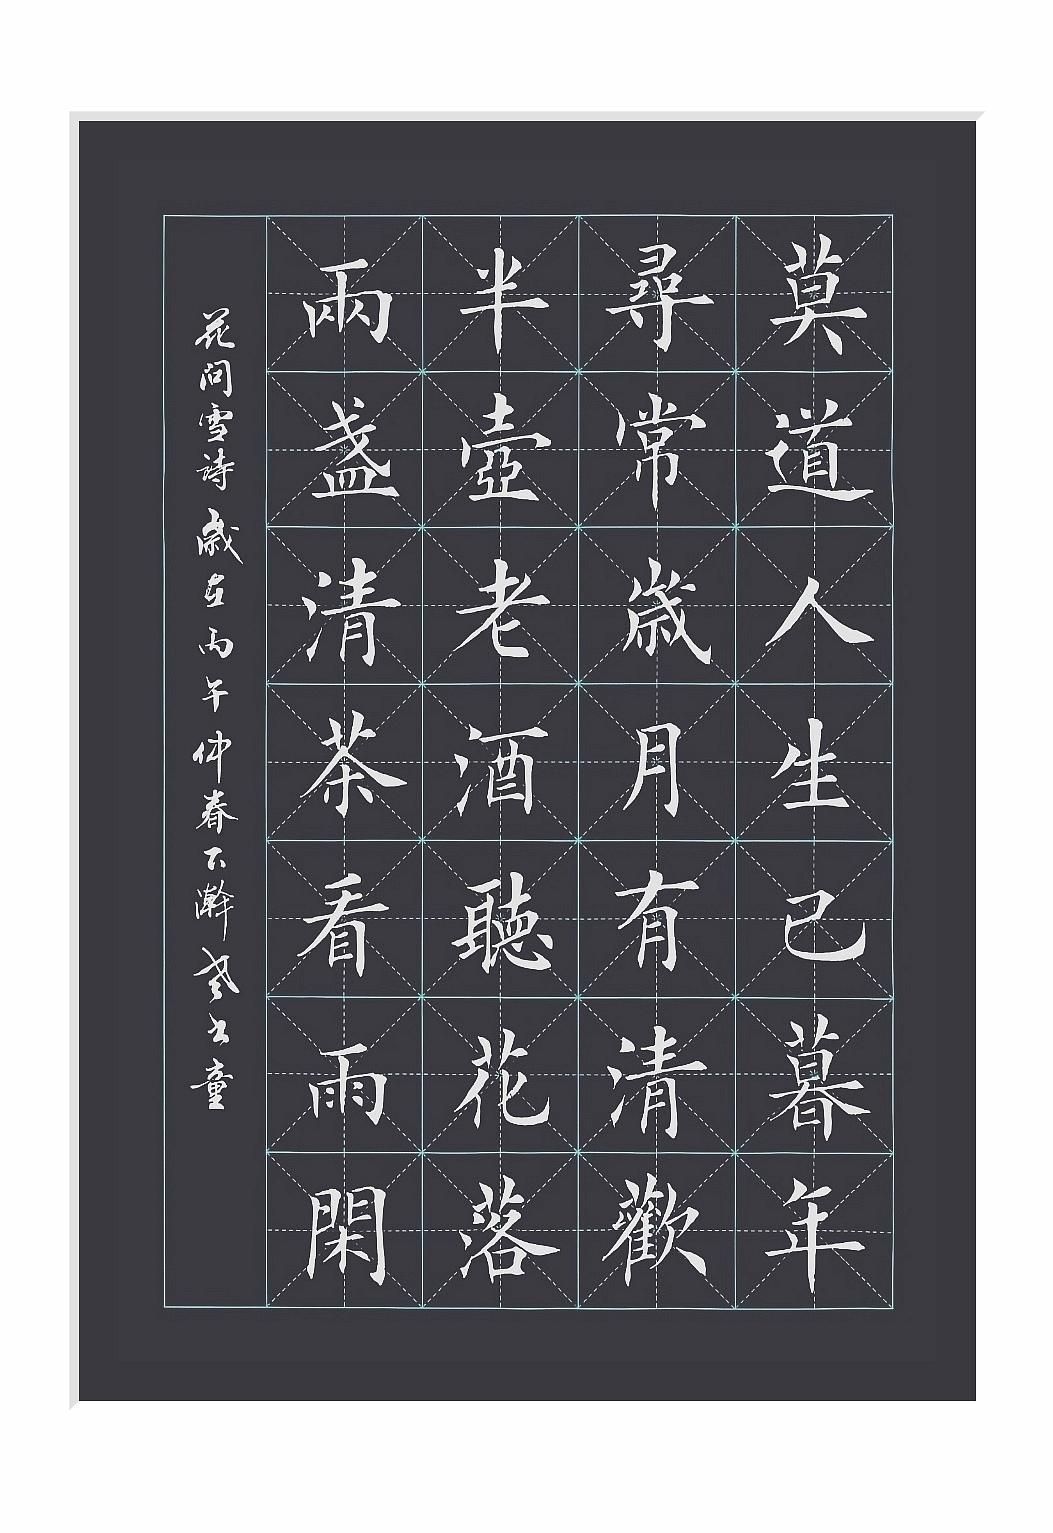 莫道人生已暮年
尋常歲月有清歡
半壺老酒聽花落
兩盞清茶看雨閑
花问雪詩 歲在丙午仲春下澣 書童